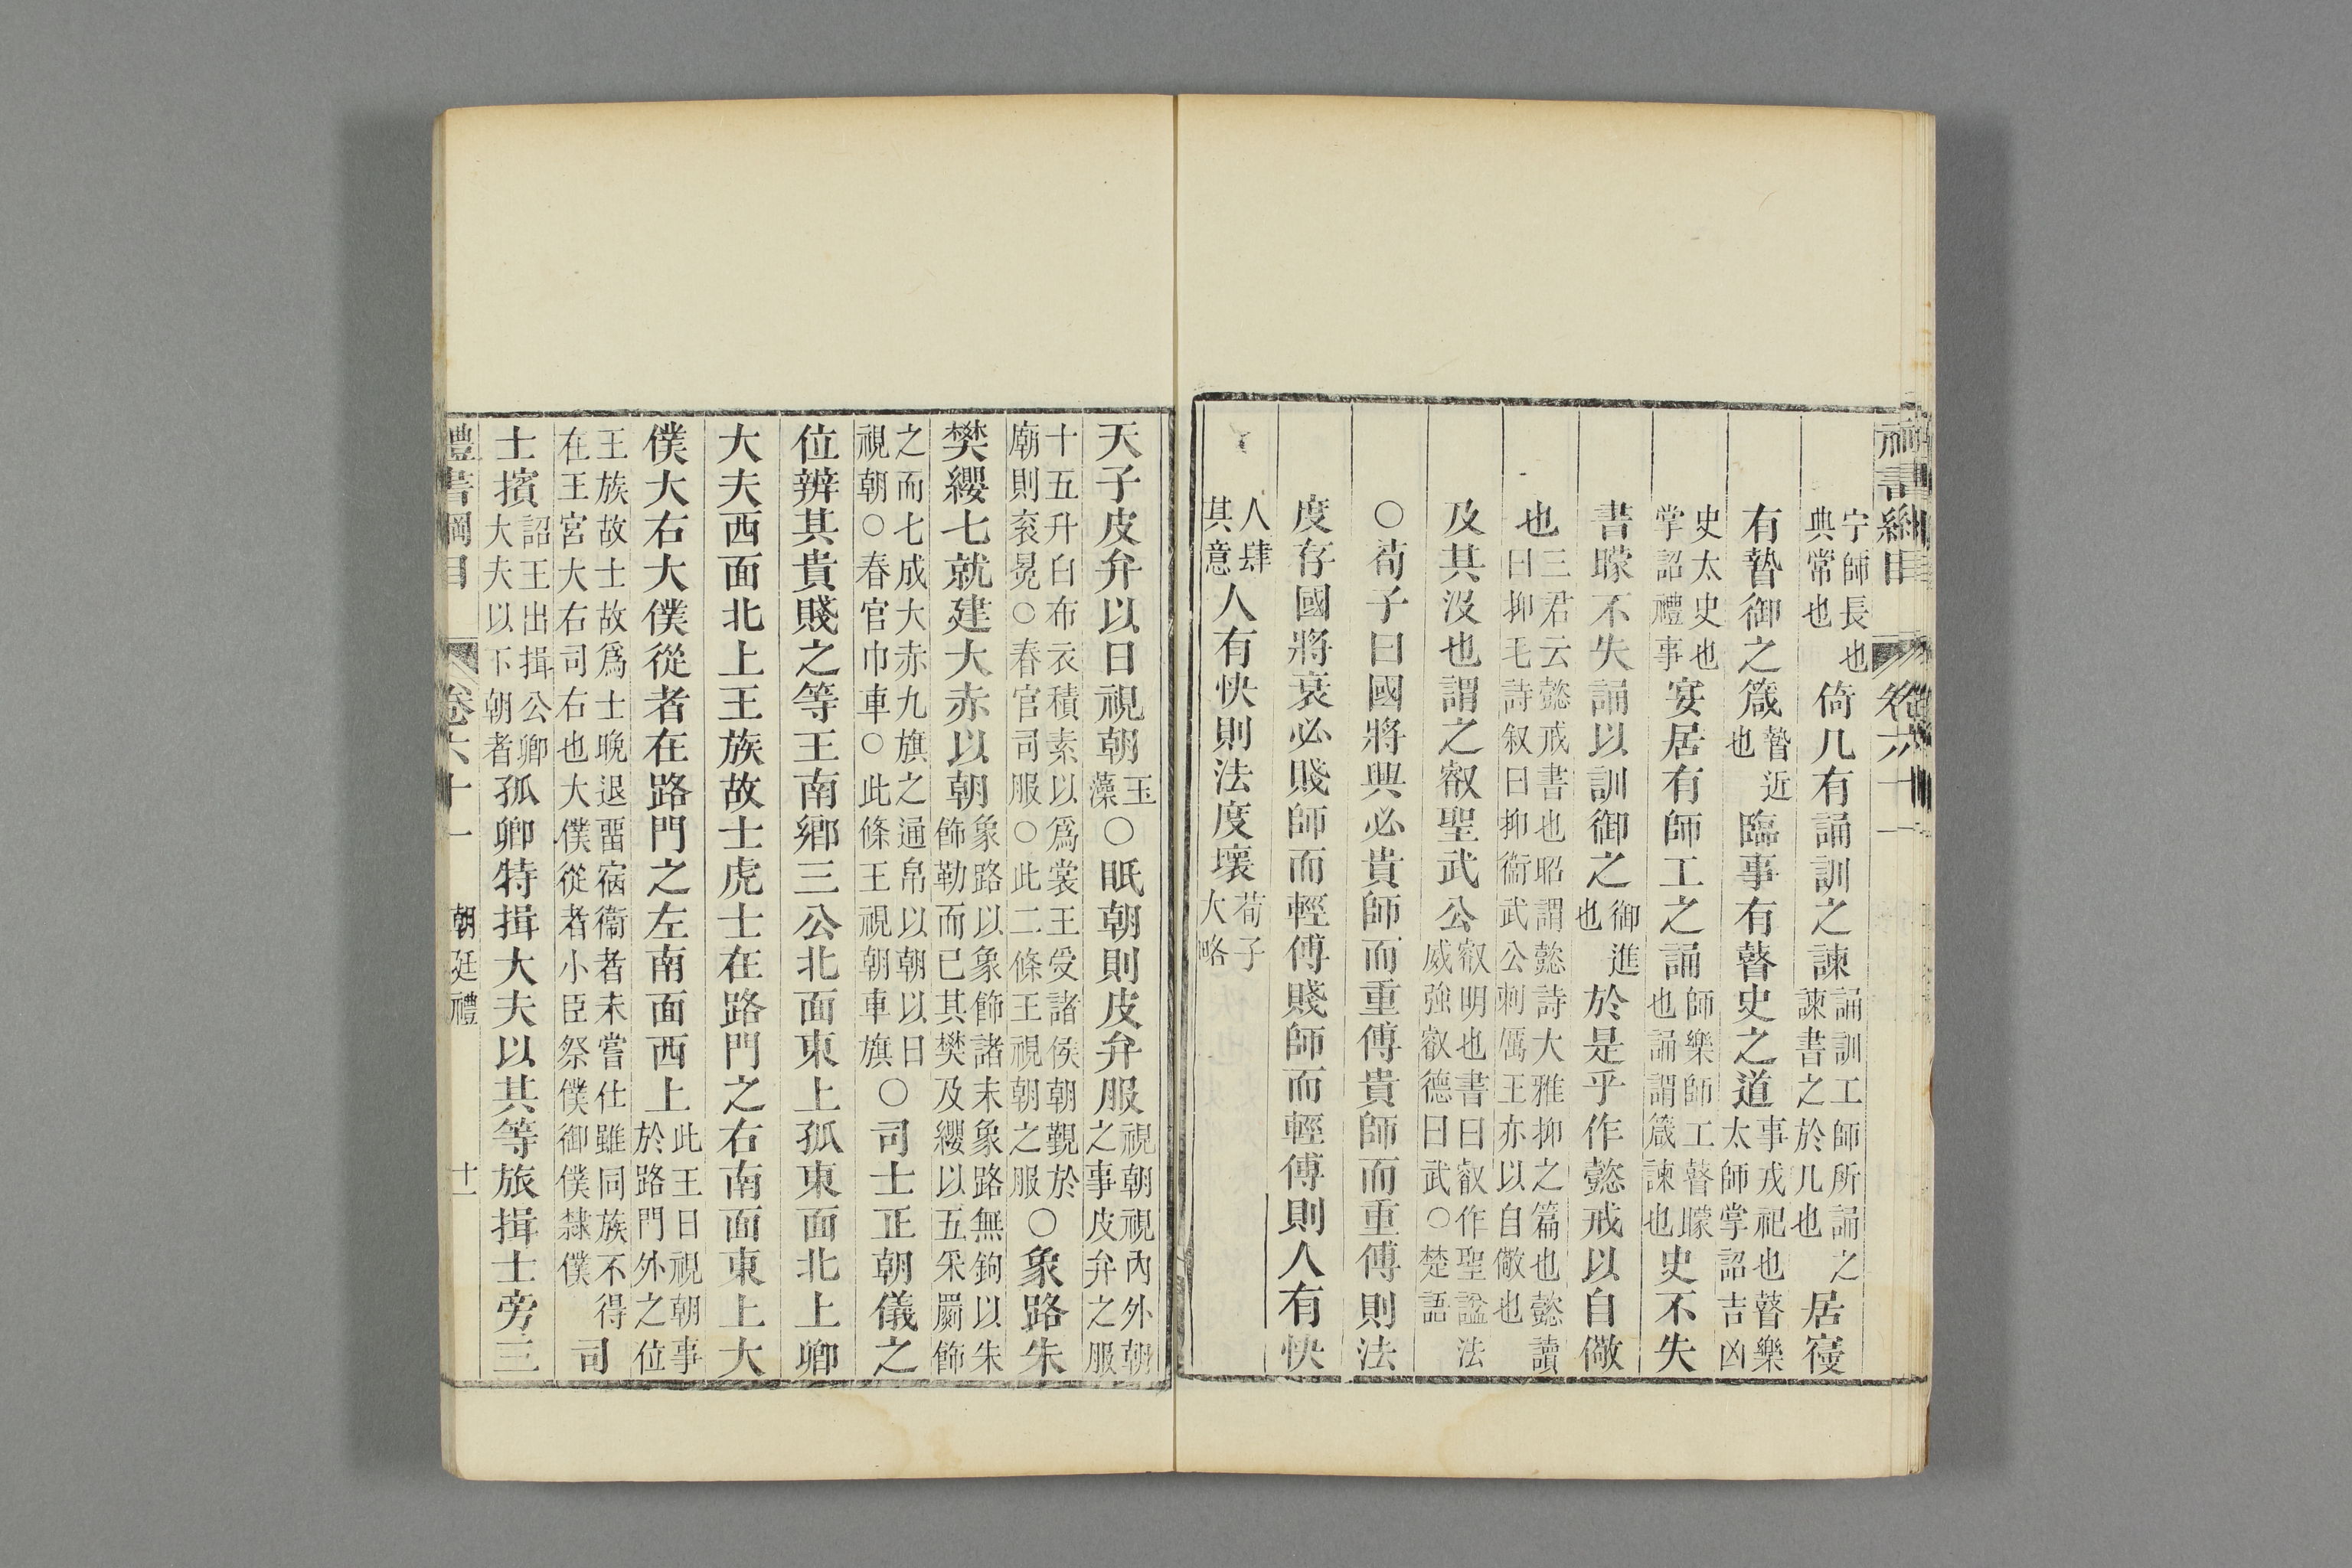 宁師長也典常也倚几有誦訓之諫誦訓工師所誦之諫書之於几也居寑
有暬御之箴暬近也臨事有瞽史之道事戎祀也瞽樂太師掌詔吉凶
史太史也掌詔禮事宴居有師工之誦師樂師工瞽矇也誦謂箴諫也史不失
書矇不失誦以訓御之御進也於是乎作懿戒以自儆
也三君云懿戒書也昭謂懿詩大雅抑之篇也懿讀曰抑毛詩叙曰抑衞武公刺厲王亦以自儆也
及其没也謂之叡聖武公叡明也書曰叡作聖諡法威強叡德曰武○楚語
○荀子曰國將興必貴師而重傅貴師而重傅則法
度存國將衰必賤師而輕傅賤師而輕傅則人有快
人肆其意人有快則法度壞荀子大略
天子皮弁以日視朝玉藻○眡朝則皮弁服視朝視內外朝之事皮弁之服
十五升白布衣積素以爲裳王受諸侯朝覲於廟則衮冕○春官司服○此二條王視朝之服○象路朱
樊纓七就建大赤以朝象路以象飾諸末象路無鉤以朱飾勒而已其樊及纓以五采罽飾
之而七成大赤九旗之通帛以朝以日視朝○春官巾車○此條王視朝車旗○司士正朝儀之
位辨其貴賤之等王南鄉三公北面東上孤東面北上卿
大夫西面北上王族故士虎士在路門之右南面東上大
僕大右大僕從者在路門之左南面西上此王日視朝事於路門外之位
王族故士故爲士晚退畱宿衞者未嘗仕雖同族不得在王宮大右司右也大僕從者小臣祭僕御僕隸僕司
士擯詔王出揖公卿大夫以下朝者孤卿特揖大夫以其等旅揖士旁三
禮書綱目 卷六十一 朝廷禮 十一